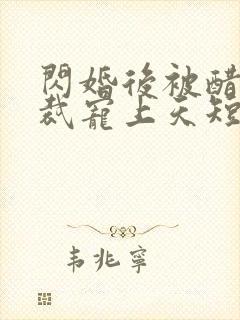 閃婚後被醋
裁寵上天短
韦兆寧